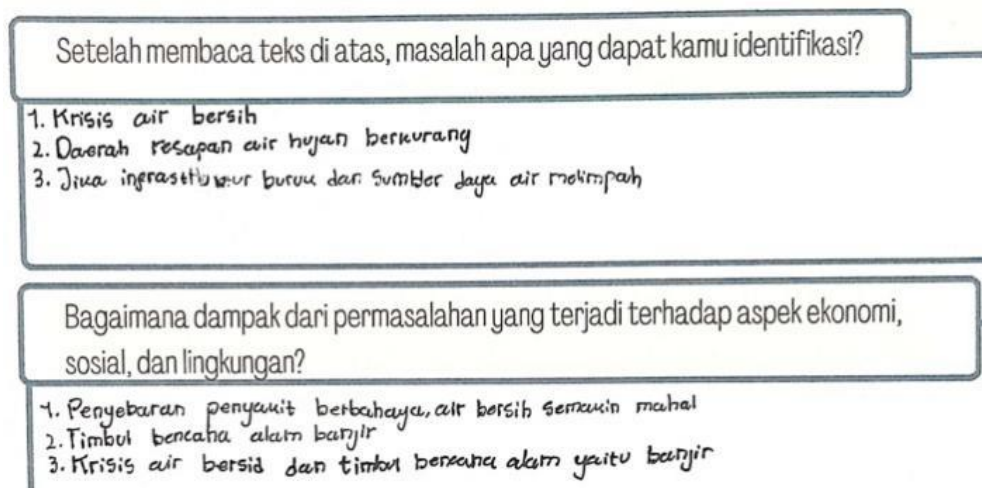 Setelah membaca teks di atas, masalah apa yang dapat kamu identifikasi?
1. Krisis air bersih
2. Daerah resapan air hujan berkurang
3. Jika infrastruktur buruk dan sumber daya air melimpah
Bagaimana dampak dari permasalahan yang terjadi terhadap aspek ekonomi,
sosial, dan lingkungan?
1. Penyebaran penyakit berbahaya, air bersih semakin mahal
2. Timbul bencana alam banjir
3. Krisis air bersid dan timbul bencana alam yaitu banjir